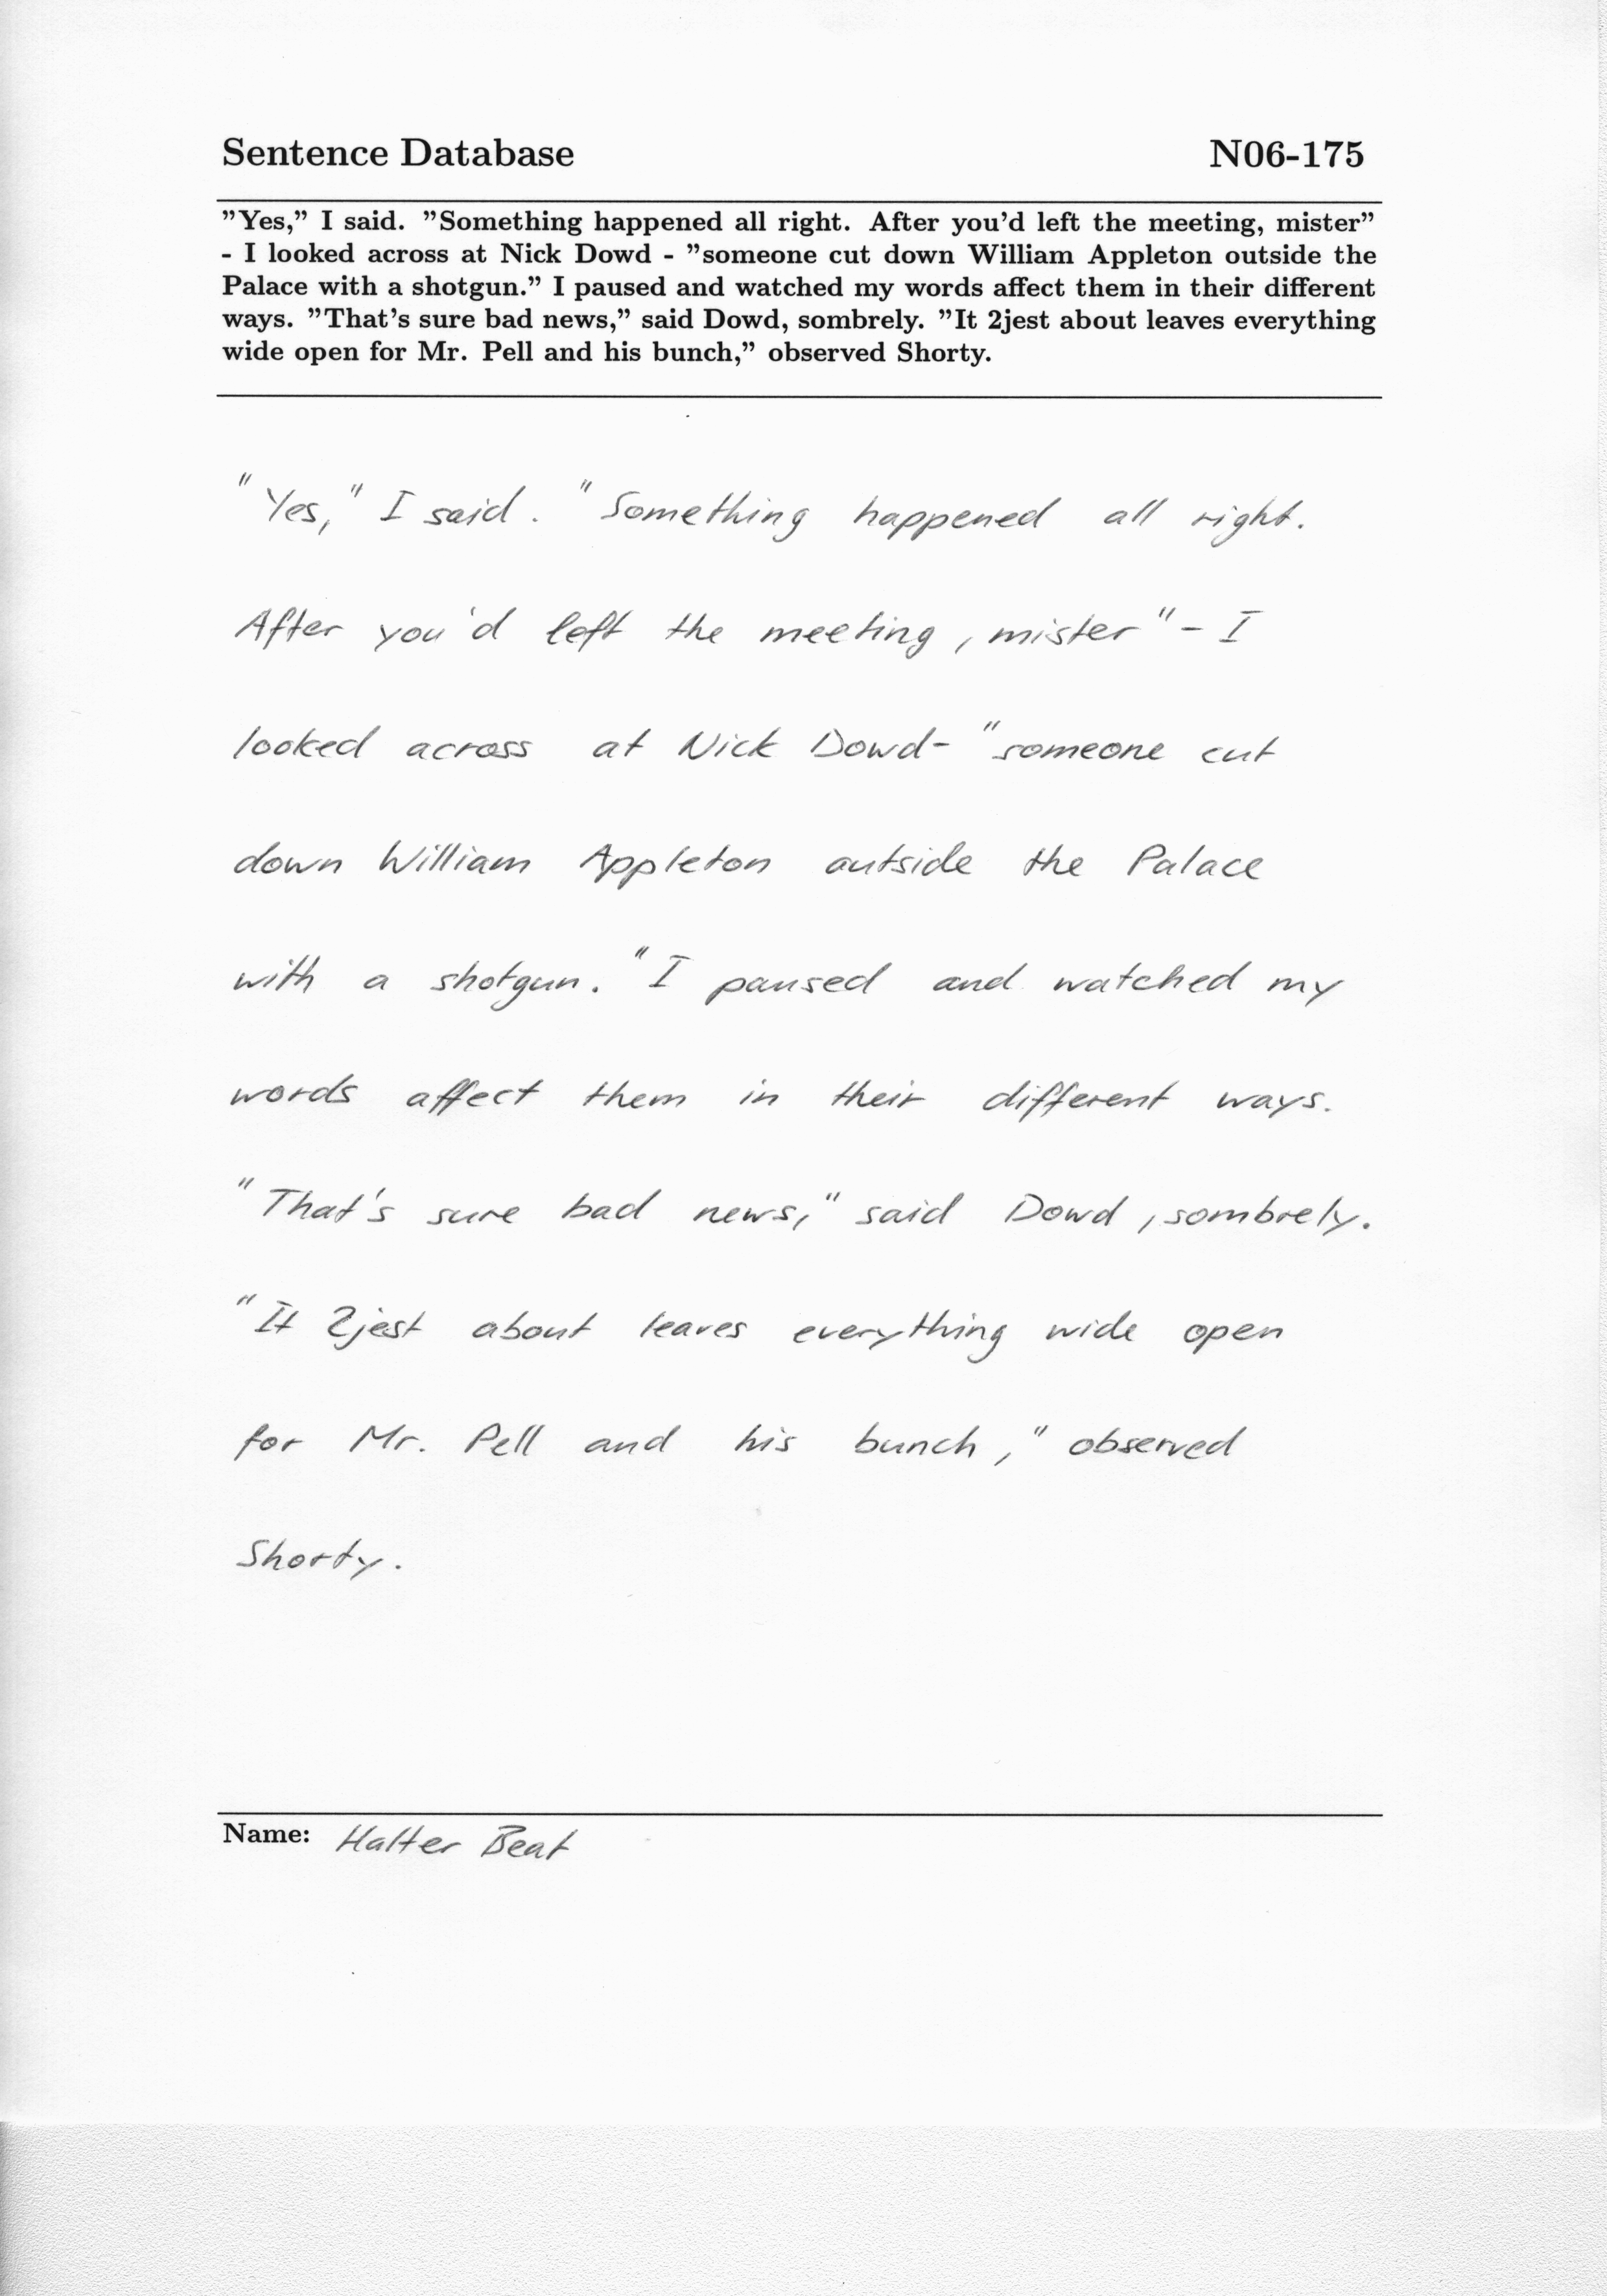 Sentence Database N06-175
"Yes," I said. "Something happened all right. After you'd left the meeting, mister"
- I looked across at Nick Dowd - "someone cut down William Appleton outside the
Palace with a shotgun." I paused and watched my words affect them in their different
ways. "That's sure bad news," said Dowd, sombrely. "It 2jest about leaves everything
wide open for Mr. Pell and his bunch," observed Shorty.
"Yes," I said. "Something happened all right.
After you'd left the meeting, mister" - I
looked across at Nick Dowd - "someone cut
down William Appleton outside the Palace
with a shotgun." I paused and watched my
words affect them in their different ways.
"That's sure bad news," said Dowd, sombrely.
"It 2jest about leaves everything wide open
for Mr. Pell and his bunch," observed
Shorty.
Name: Halter Beat